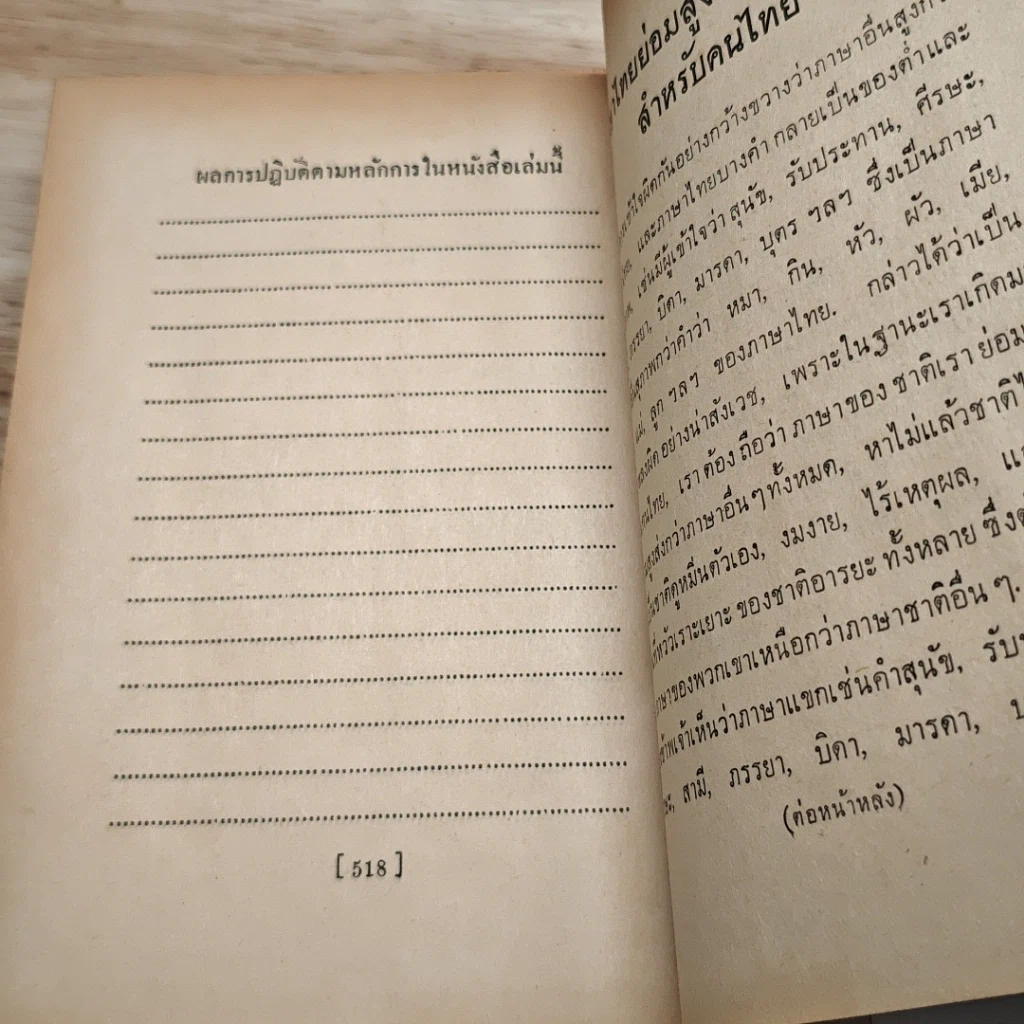 ผลการปฏิบัติตามหลักการในหนังสือเล่มนี้
[ 518 ]
ไทยย่อมสูง
สำหรับคนไทย
เข้าใจผิดกันอย่างกว้างขวางว่าภาษาอื่นสูงก
และภาษาไทยบางคำ กลายเป็นของต่ำและ
เช่นมีผู้เข้าใจว่า สุนัข, รับประทาน, ศีรษะ,
บิดา, มารดา, บุตร ฯลฯ ซึ่งเป็นภาษา
สุภาพกว่าคำว่า หมา, กิน, หัว, ผัว, เมีย,
แม่, ลูก ฯลฯ ของภาษาไทย. กล่าวได้ว่าเป็น
อย่างน่าสังเวช, เพราะในฐานะเราเกิดม
เราต้องถือว่า ภาษาของ ชาติเรา ย่อม
สูงส่งกว่าภาษาอื่นๆทั้งหมด, หาไม่แล้วชาติไ
ชาติดูหมิ่นตัวเอง, งมงาย, ไร้เหตุผล, แ
หัวเราะเยาะ ของชาติอารยะ ทั้งหลาย ซึ่งต
ภาษาของพวกเขาเหนือกว่าภาษาชาติอื่น ๆ.
ข้าพเจ้าเห็นว่าภาษาแขกเช่นคำสุนัข, รับ
สามี, ภรรยา, บิดา, มารดา, บ
(ต่อหน้าหลัง)